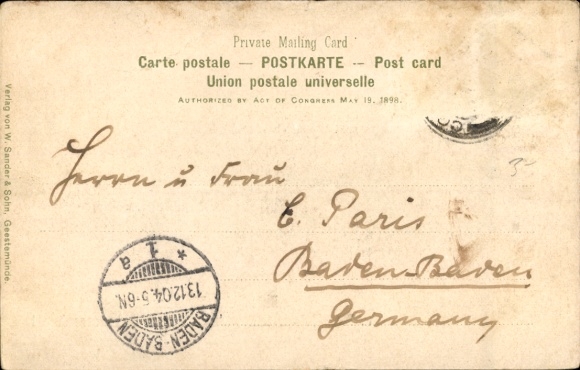 Private Mailing Card
Carte postale — POSTKARTE — Post card
Union postale universelle
AUTHORIZED BY ACT OF CONGRESS MAY 19, 1898.
Verlag von W. Sander & Sohn, Geestemünde.
Herrn u Frau
E. Paris
Baden-Baden
Germany
3-
* 1 a
13.12.04.5-6N.
BADEN-BADEN